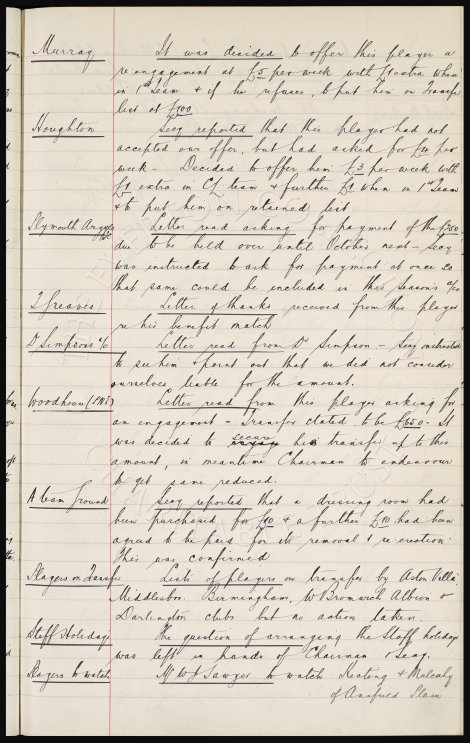 Murray It was decided to offer this player a
re engagement at £5 per week with £1 extra when
in 1st team & if he refuses, to put him on Transfer
list at £100
Houghton Secy reported that this player had not
accepted our offer, but had asked for per
week - Decided to offer him £3 per week with
£1 extra in CL team & further £1 when in 1st team
& to put him on retained list.
Plymouth Argyle Letter read asking for payment of the
due to be held over until October next - Secy
was instructed to ask for payment at once so
that same could be included in this Seasons a/cs
Greaves Letter of thanks received from this player
re his benefit match
Dr Simpsons a/c Letter read from Dr Simpson - Secy instructed
to see him & point out that we did not consider
ourselves liable for the amount.
Woodhouse (PNE) Letter read from this player asking for
an engagement - Transfer stated to be £650. It
was decided to secure his transfer up to this
amount, in meantime Chairman to endeavour
to get same reduced.
A team ground Secy reported that a dressing room had
been purchased for £40 & a further £10 had been
agreed to be paid for its removal & re erection.
This was confirmed
Players on Transfer Lists of players on transfer by Aston Villa
Middlesbro, Birmingham, W Bromwich Albion &
Darlington clubs but no action taken.
Staff Holidays The question of arranging the Staff holidays
was left in hands of Chairman & Secy.
Players to watch Mr W J Sawyer to watch Keating & Mulcahy
of Annfield Plain